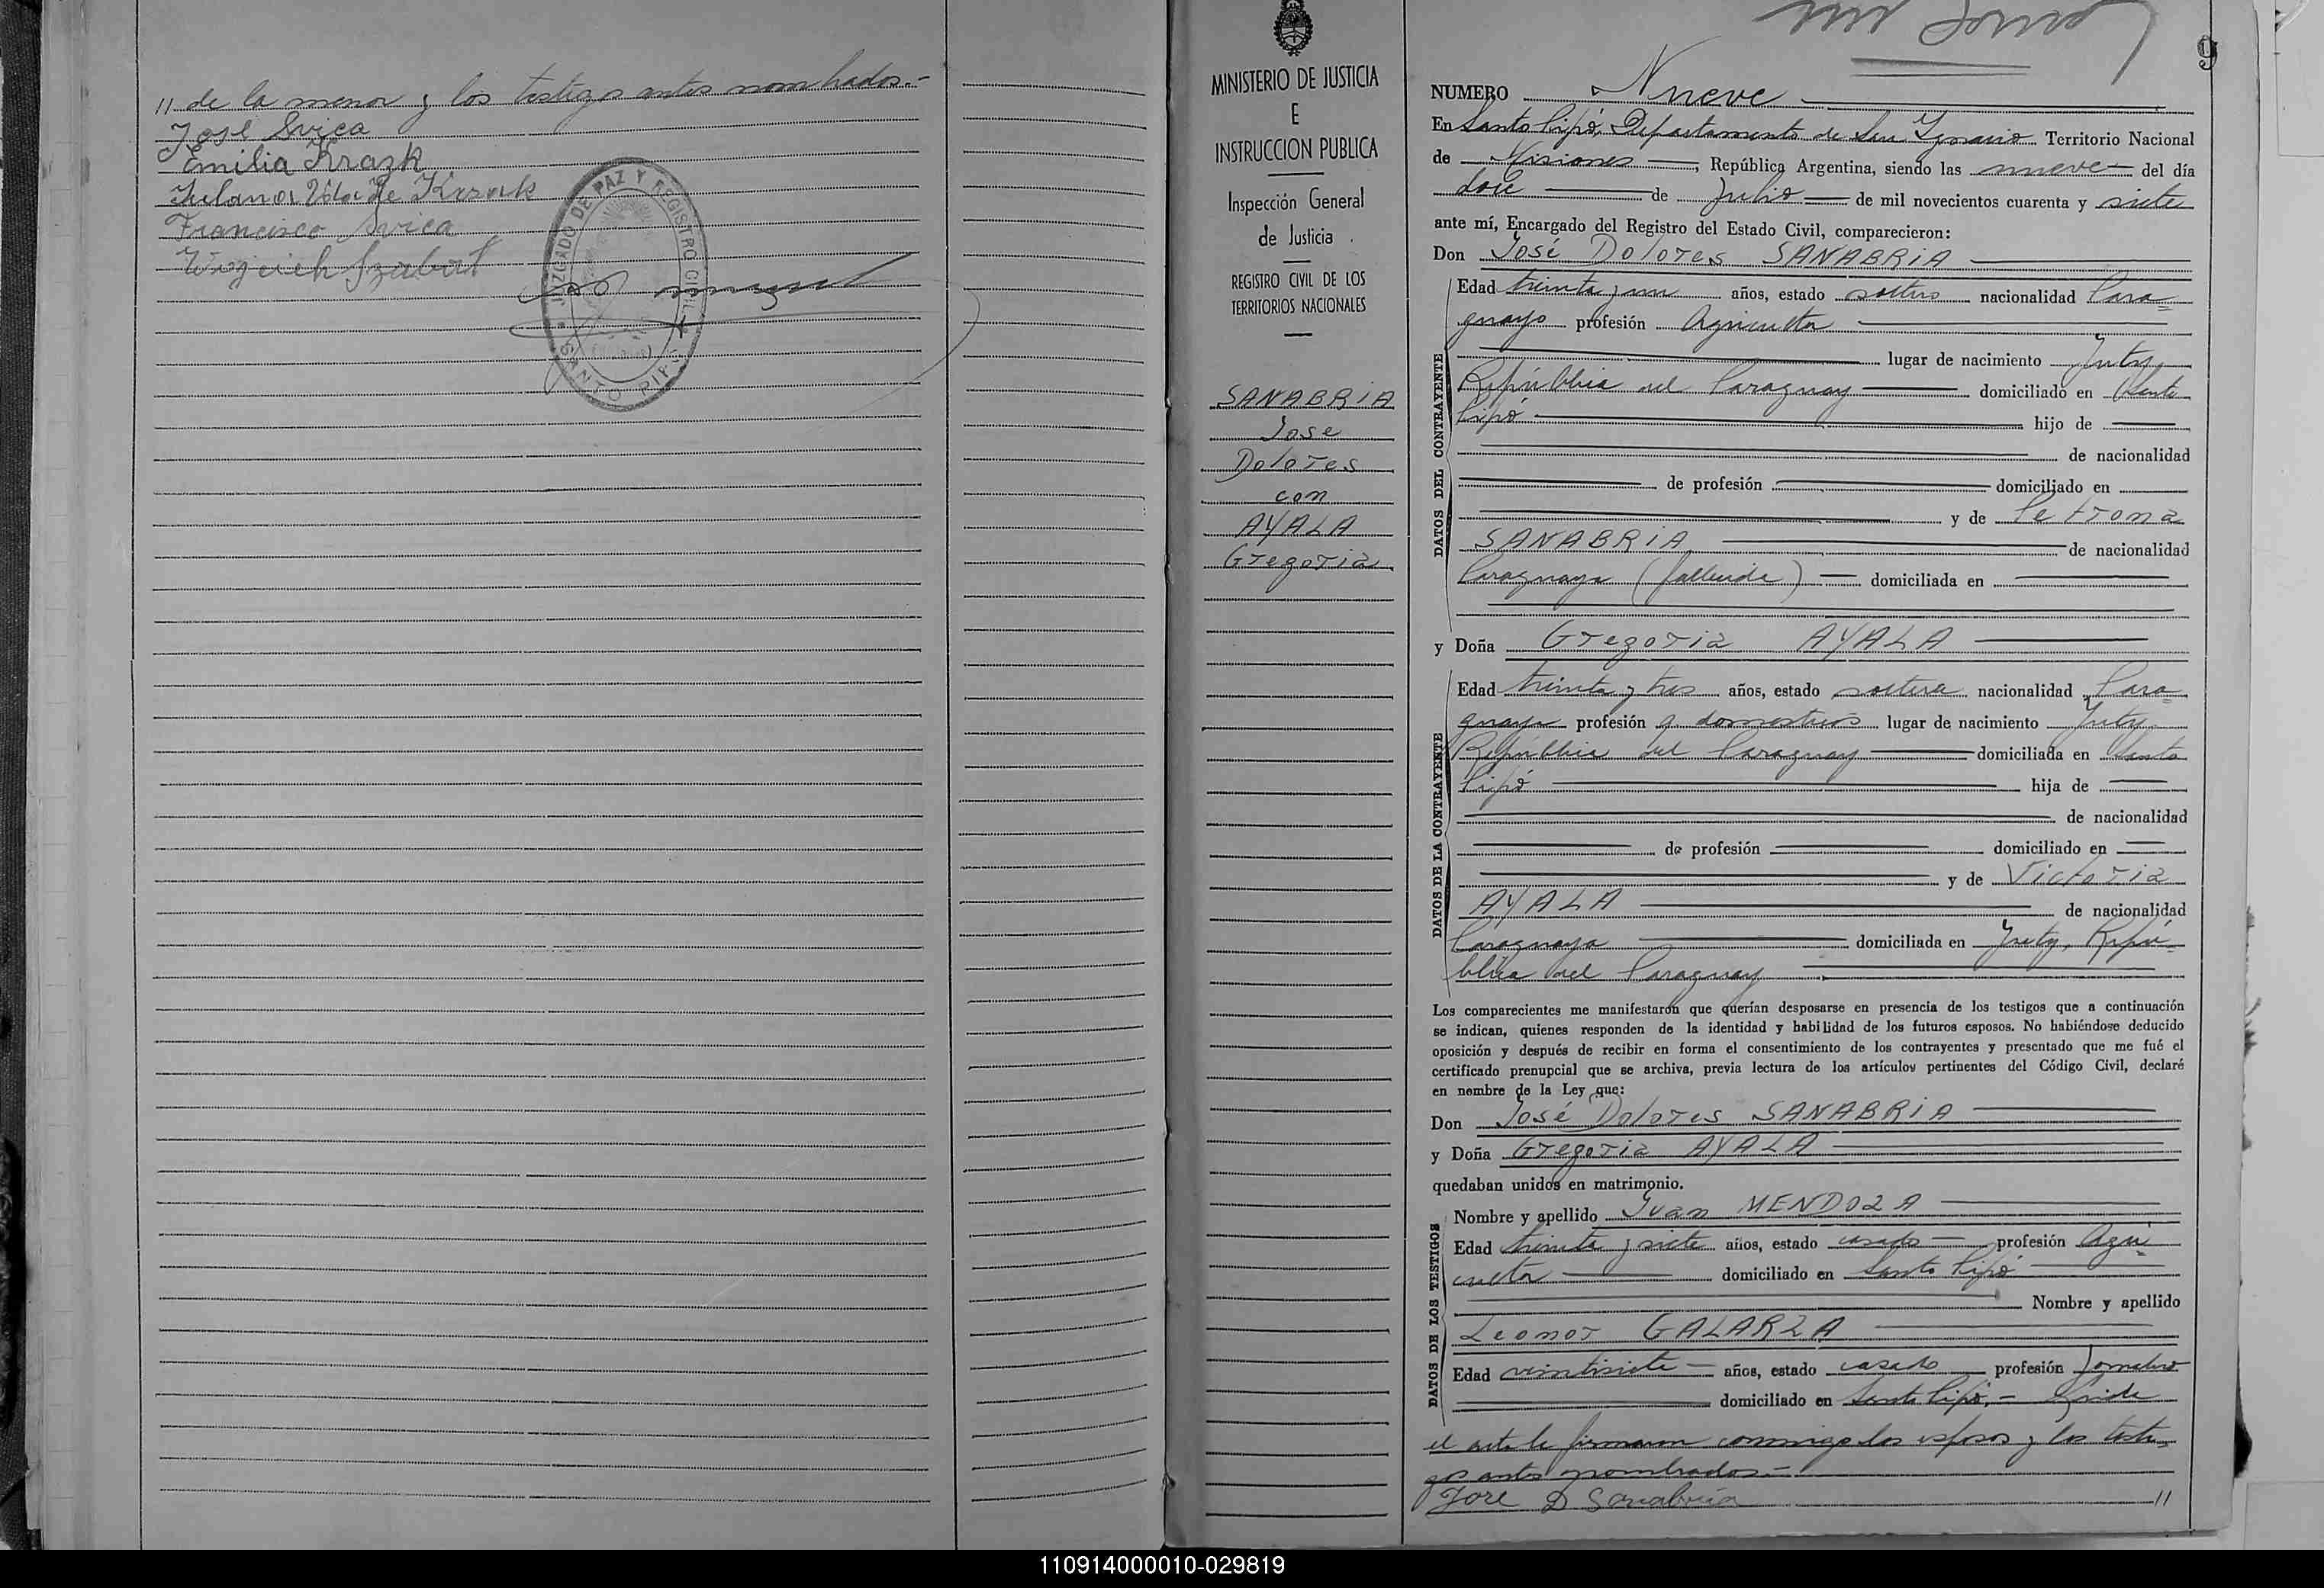 // de la menor y los testigos antes nombrados.-
José Svica
Emilia Krazk
Vda de Krazk
Francisco Svica
Wojciech Szabert
JUZGADO DE PAZ Y REGISTRO CIVIL
SANTO PIPÓ
MINISTERIO DE JUSTICIA
E
INSTRUCCION PUBLICA
Inspección General
de Justicia
REGISTRO CIVIL DE LOS
TERRITORIOS NACIONALES
SANABRIA
Jose
Dolores
con
AYALA
Gregoria
9
NUMERO Nueve
En Santo Pipó, Departamento de San Ignacio Territorio Nacional
de Misiones, República Argentina, siendo las nueve del día
doce de Julio de mil novecientos cuarenta y siete
ante mí, Encargado del Registro del Estado Civil, comparecieron:
Don José Dolores SANABRIA
DATOS DEL CONTRAYENTE
Edad treinta y un años, estado soltero nacionalidad Para=
guayo profesión Agricultor
lugar de nacimiento Yuty
República del Paraguay domiciliado en Santo
Pipó hijo de
de nacionalidad
de profesión domiciliado en
y de Petrona
SANABRIA de nacionalidad
Paraguaya (fallecida) domiciliada en
y Doña Gregoria AYALA
DATOS DE LA CONTRAYENTE
Edad treinta y tres años, estado soltera nacionalidad Para=
guaya profesión q. domesticos lugar de nacimiento Yuty
República del Paraguay domiciliada en Santo
Pipó hija de
de nacionalidad
de profesión domiciliado en
y de Victoria
AYALA de nacionalidad
Paraguaya domiciliada en Yuty, Repú=
blica del Paraguay
Los comparecientes me manifestaron que querían desposarse en presencia de los testigos que a continuación
se indican, quienes responden de la identidad y habilidad de los futuros esposos. No habiéndose deducido
oposición y después de recibir en forma el consentimiento de los contrayentes y presentado que me fué el
certificado prenupcial que se archiva, previa lectura de los artículos pertinentes del Código Civil, declaré
en nombre de la Ley que:
Don José Dolores SANABRIA
y Doña Gregoria AYALA
quedaban unidos en matrimonio.
DATOS DE LOS TESTIGOS
Nombre y apellido Juan MENDOZA
Edad treinta y siete años, estado casado profesión Agri=
cultor domiciliado en Santo Pipó
Nombre y apellido
Leonor GALARZA
Edad veintisiete años, estado casado profesión Jornalero
domiciliado en Santo Pipó.-
el acta la firmaron conmigo los esposos y los testi=
gos antes nombrados.-
Jose D Sanabria //
110914000010-029819